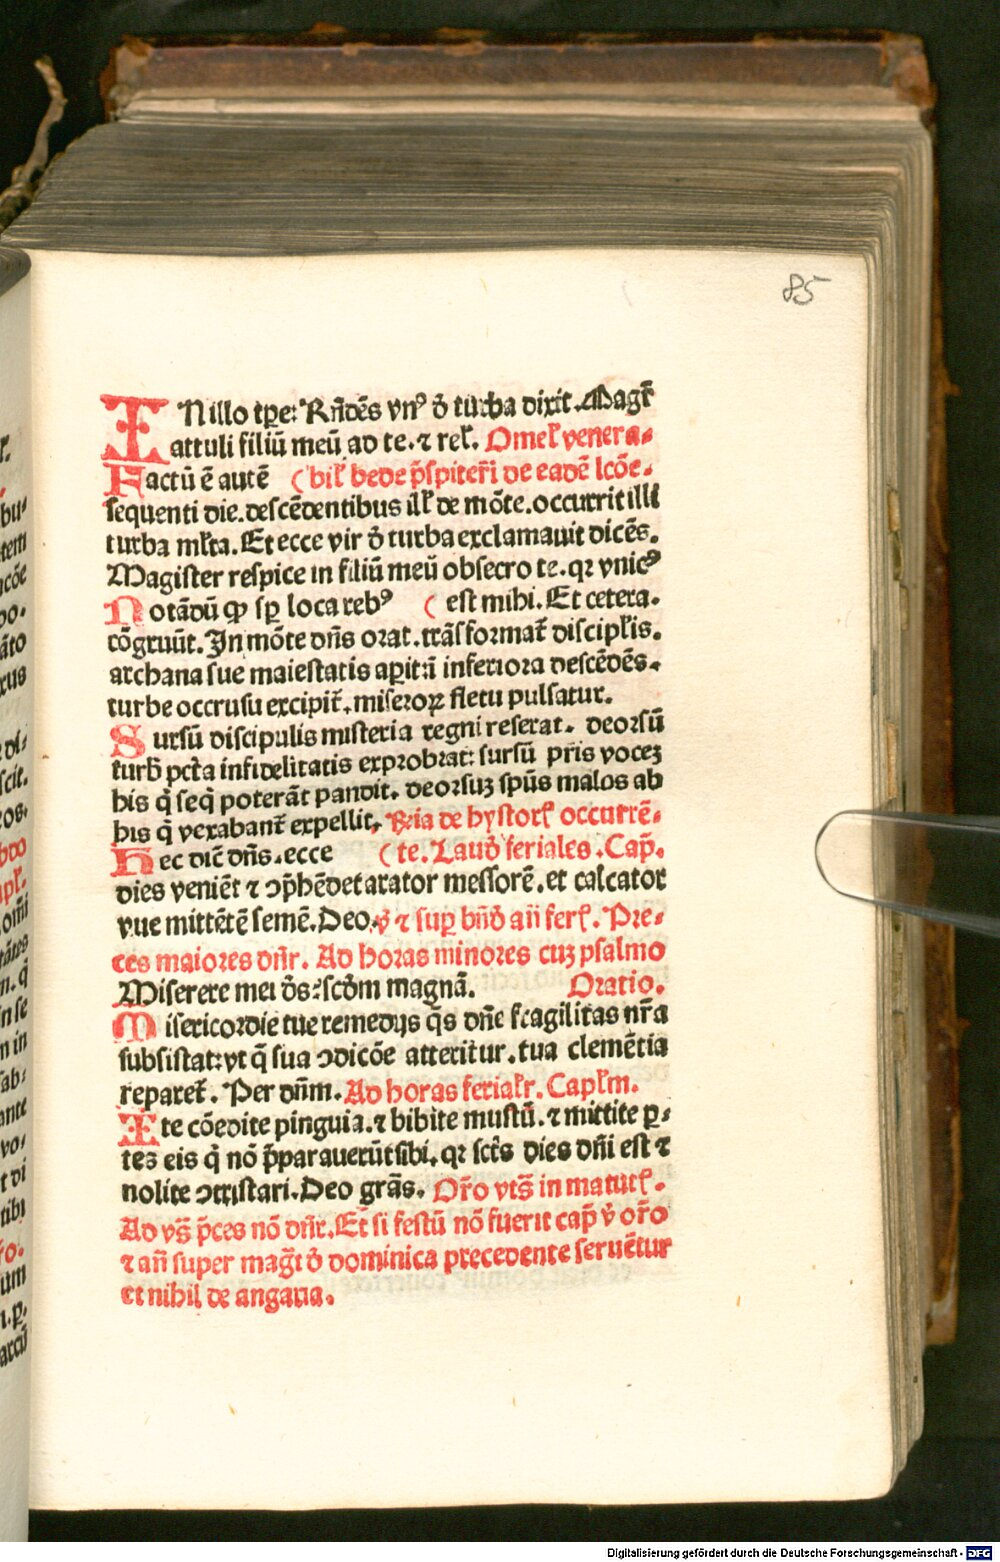 85
IN illo tꝑe: Rñdēs vnꝰ ď turba dixit. Magr̄
attuli filiū meū ad te. ⁊ rel̛. Omel̛ venera-
Factū ē autē (bil̛ bede p̄spiteri̅ de eadē lcōe.
sequenti die. descēdentibus ill̛ de mōte. occurrit illi
turba ml̛ta. Et ecce vir ď turba exclamauit dicēs.
Magister respice in filiū meū obsecro te. qꝛ vnicꝰ
Notādū ꝙ sꝑ loca rebꝰ ( est mihi. Et cetera.
cōgruūt. In mōte dn̄s orat. trāsformat̄ discipl̛is.
archana sue maiestatis aꝑit: i inferiora descēdēs.
turbe occrusu excipit̄. miseroꝝ fletu pulsatur.
Sursū discipulis misteria regni reserat. deorsū
turb̄ pctā infidelitatis exprobrat: sursū pr̄is vocez
his q̄ seq̄ poterāt pandit. deorsuz spūs malos ab
his q̄ vexabant̄ expellit. Rn̄ia de hystor̛ occurrē-
Hec dic̄ dn̄s. ecce (te. Laud̄ feriales. Cap̄.
dies veniēt ⁊ ↄp̄hēdet arator messorē. et calcator
vue mittētē semē. Deo. v̄ ⁊ suꝑ bn̄d̄ an̄ fer̛. Pre-
ces maiores dn̄r. Ad horas minores cuz psalmo
Miserere mei d̄s: scd̄m magnā. Oratio.
Misericordie tue remedijs q̄s dn̄e fragilitas nr̄a
subsistat: vt q̄ sua ↄdicōe atteritur. tua clemētia
reparet̄. Per dn̄m. Ad horas ferial̛r. Capl̛m.
Ite cōedite pinguia. ⁊ bibite mustū. ⁊ mittite ꝑ-
tes eis q̄ nō p̄parauerūt sibi. qꝛ sct̄s dies dn̄i est ⁊
nolite ↄtristari. Deo grās. Or̄o vts̄ in matut̛.
Ad vs̄ p̄ces nō dn̄r. Et si festū nō fuerit cap̄ v̄ or̄o
⁊ an̄ super mag̅t ď dominica precedente seruētur
et nihil de angaria.
Digitalisierung gefördert durch die Deutsche Forschungsgemeinschaft - DFG